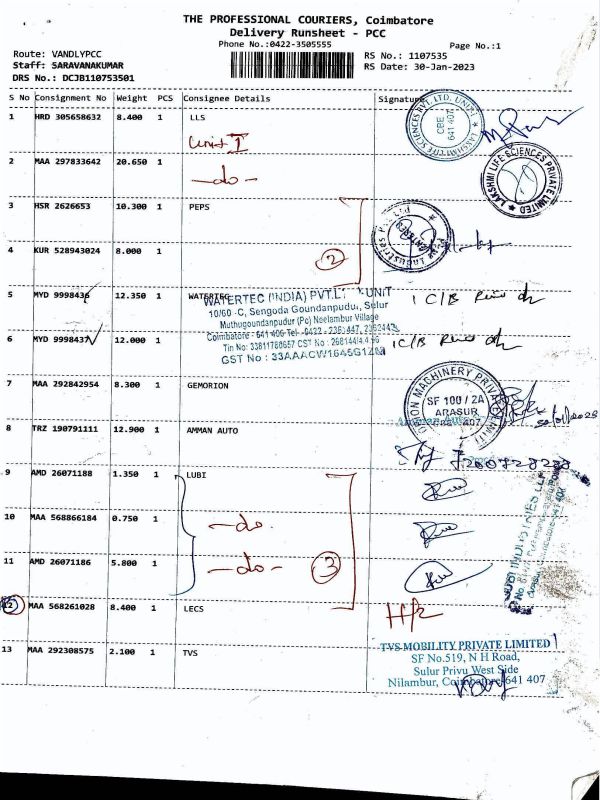 THE PROFESSIONAL COURIERS, Coimbatore
Delivery Runsheet - PCC
Phone No.:0422-3505555
Page No.:1
Route: VANDLYPCC
Staff: SARAVANAKUMAR
DRS No.: DCJB110753501
RS No.: 1107535
RS Date: 30-Jan-2023
S No Consignment No Weight PCS Consignee Details Signature
1 HRD 305658632 8.400 1 LLS
Unit I
CBE 641 407
2 MAA 297833642 20.650 1
-do-
LAKSHMI LIFE SCIENCES PRIVATE LIMITED
3 HSR 2626653 10.300 1 PEPS
4 KUR 528943024 8.000 1
2
5 MYD 9998436 12.350 1 WATERTEC
WATERTEC (INDIA) PVT.LT UNIT
10/60 -C, Sengoda Goundanpudur, Sulur
Muthugoundanpudur (Po) Neelambur Village
Coimbatore - 641 406
I C/B
6 MYD 9998437 12.000 1
I C/B
7 MAA 292842954 8.300 1 GEMORION
MACHINERY PRIVATE LIMITED
SF 100 / 2A
ARASUR
8 TRZ 190791111 12.900 1 AMMAN AUTO
9 AMD 26071188 1.350 1 LUBI
10 MAA 568866184 0.750 1
-do-
11 AMD 26071186 5.800 1
-do- 3
LUBI INDUSTRIES LLP
12 MAA 568261028 8.400 1 LECS
13 MAA 292308575 2.100 1 TVS
TVS MOBILITY PRIVATE LIMITED
SF No.519, N H Road,
Sulur Privu West Side
Nilambur, Coimbatore 641 407